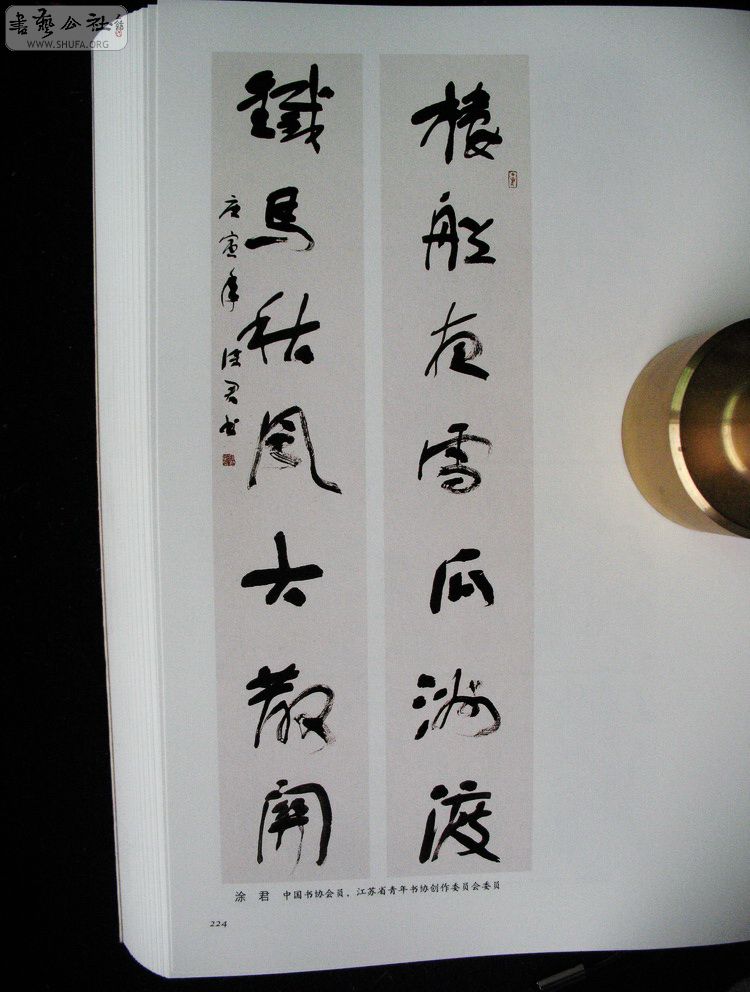 書藝公社
WWW.SHUFA.ORG
樓船夜雪瓜洲渡
鐵馬秋風大散關
庚寅年涂君书
涂 君 中国书协会员、江苏省青年书协创作委员会委员
224